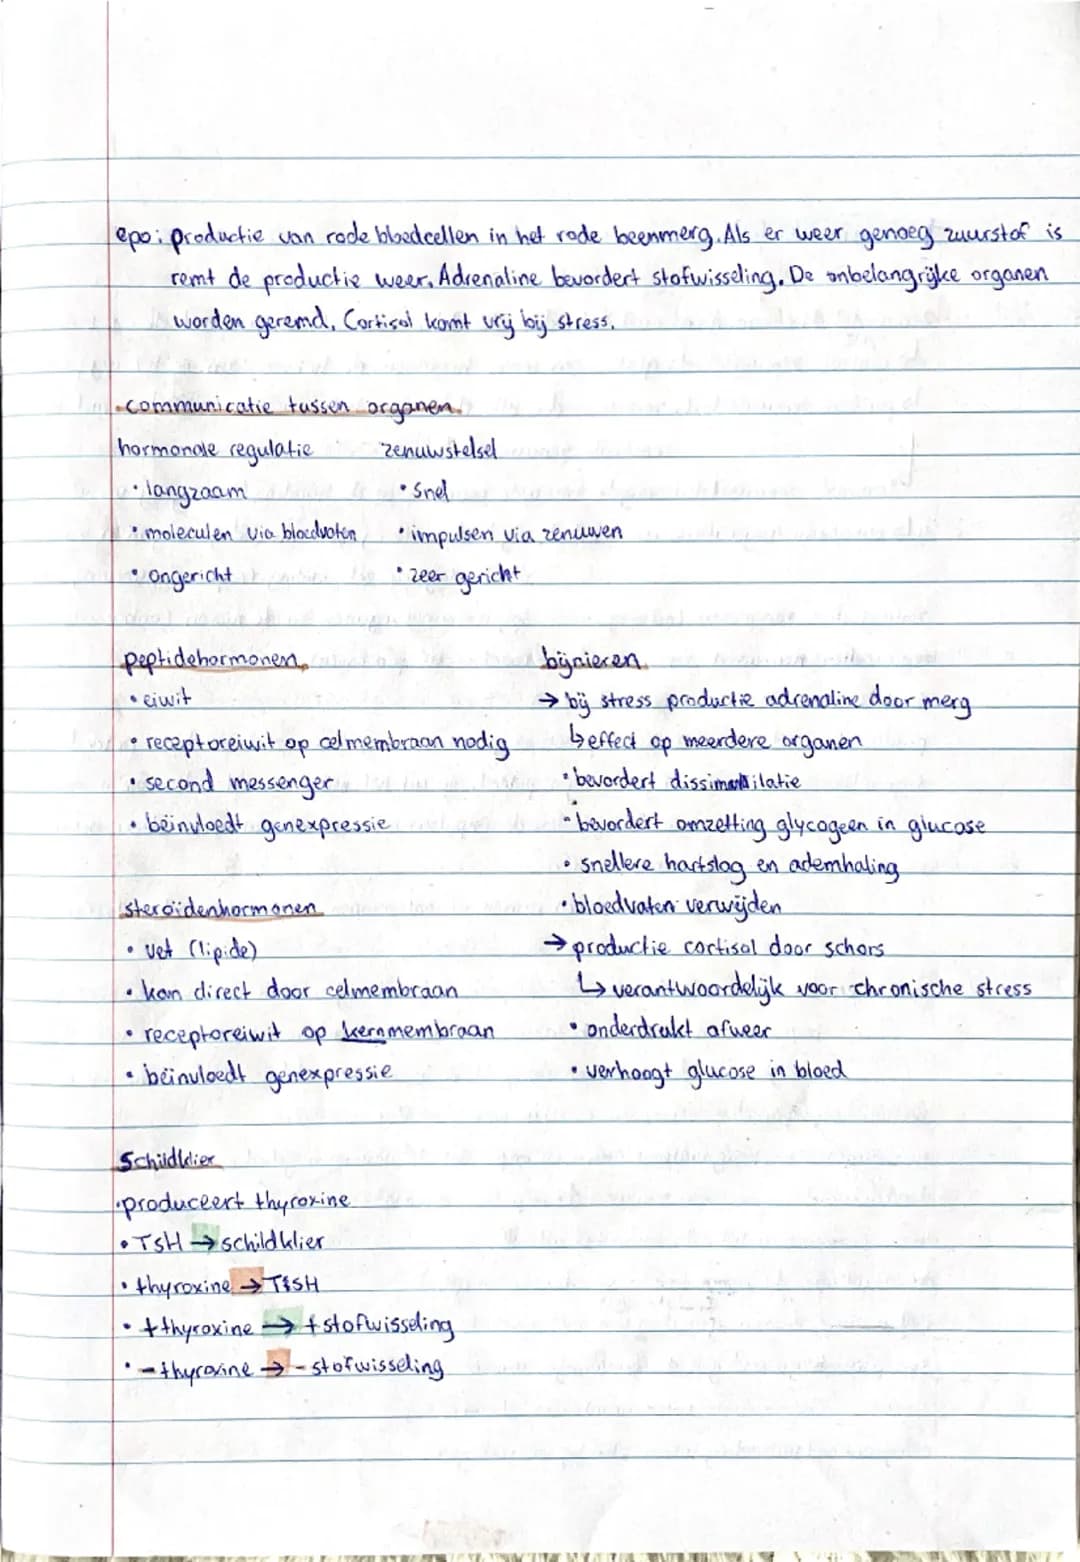 epo: productie van rode bloedcellen in het rode beenmerg. Als er weer genoeg zuurstof is
remt de productie weer. Adrenaline bevordert stofwisseling. De onbelangrijke organen
worden geremd. Cortisol komt vrij bij stress.
communicatie tussen organen.
hormonale regulatie
• langzaam
• moleculen via bloedvaten
• ongericht
zenuwstelsel
• snel
• impulsen via zenuwen
• zeer gericht
peptidehormonen
• eiwit
• receptoreiwit op celmembraan nodig
• second messenger
• beïnvloedt genexpressie
steroïdenhormonen
• vet (lipide)
• kan direct door celmembraan
• receptoreiwit op kernmembraan
• beïnvloedt genexpressie
bijnieren
→ bij stress productie adrenaline door merg
↳ effect op meerdere organen
• bevordert dissimilatie
• bevordert omzetting glycogeen in glucose
• snellere hartslag en ademhaling
• bloedvaten verwijden
→ productie cortisol door schors
↳ verantwoordelijk voor chronische stress
• onderdrukt afweer
• verhoogt glucose in bloed
Schildklier
• produceert thyroxine
• TSH → schildklier
• thyroxine → TSH
• + thyroxine → + stofwisseling
• - thyroxine → - stofwisseling